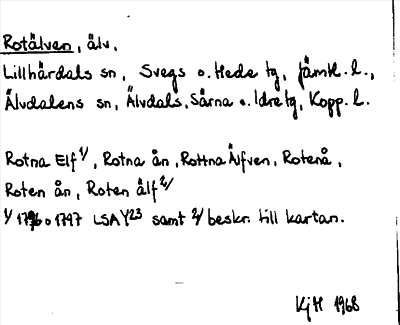 Rotälven, älv.
Lillhärdals sn, Svegs o. Hede tg, Jämtl. l.,
Älvdalens sn, Älvdals, Särna o. Idre tg, Kopp. l.
Rotna Elf 1/, Rotna ån, Rottna Älfven, Rotenå,
Roten ån, Roten älf 2/
1/ 1796 o 1797 LSA Y23 samt 2/ beskr. till kartan.
KjM 1968